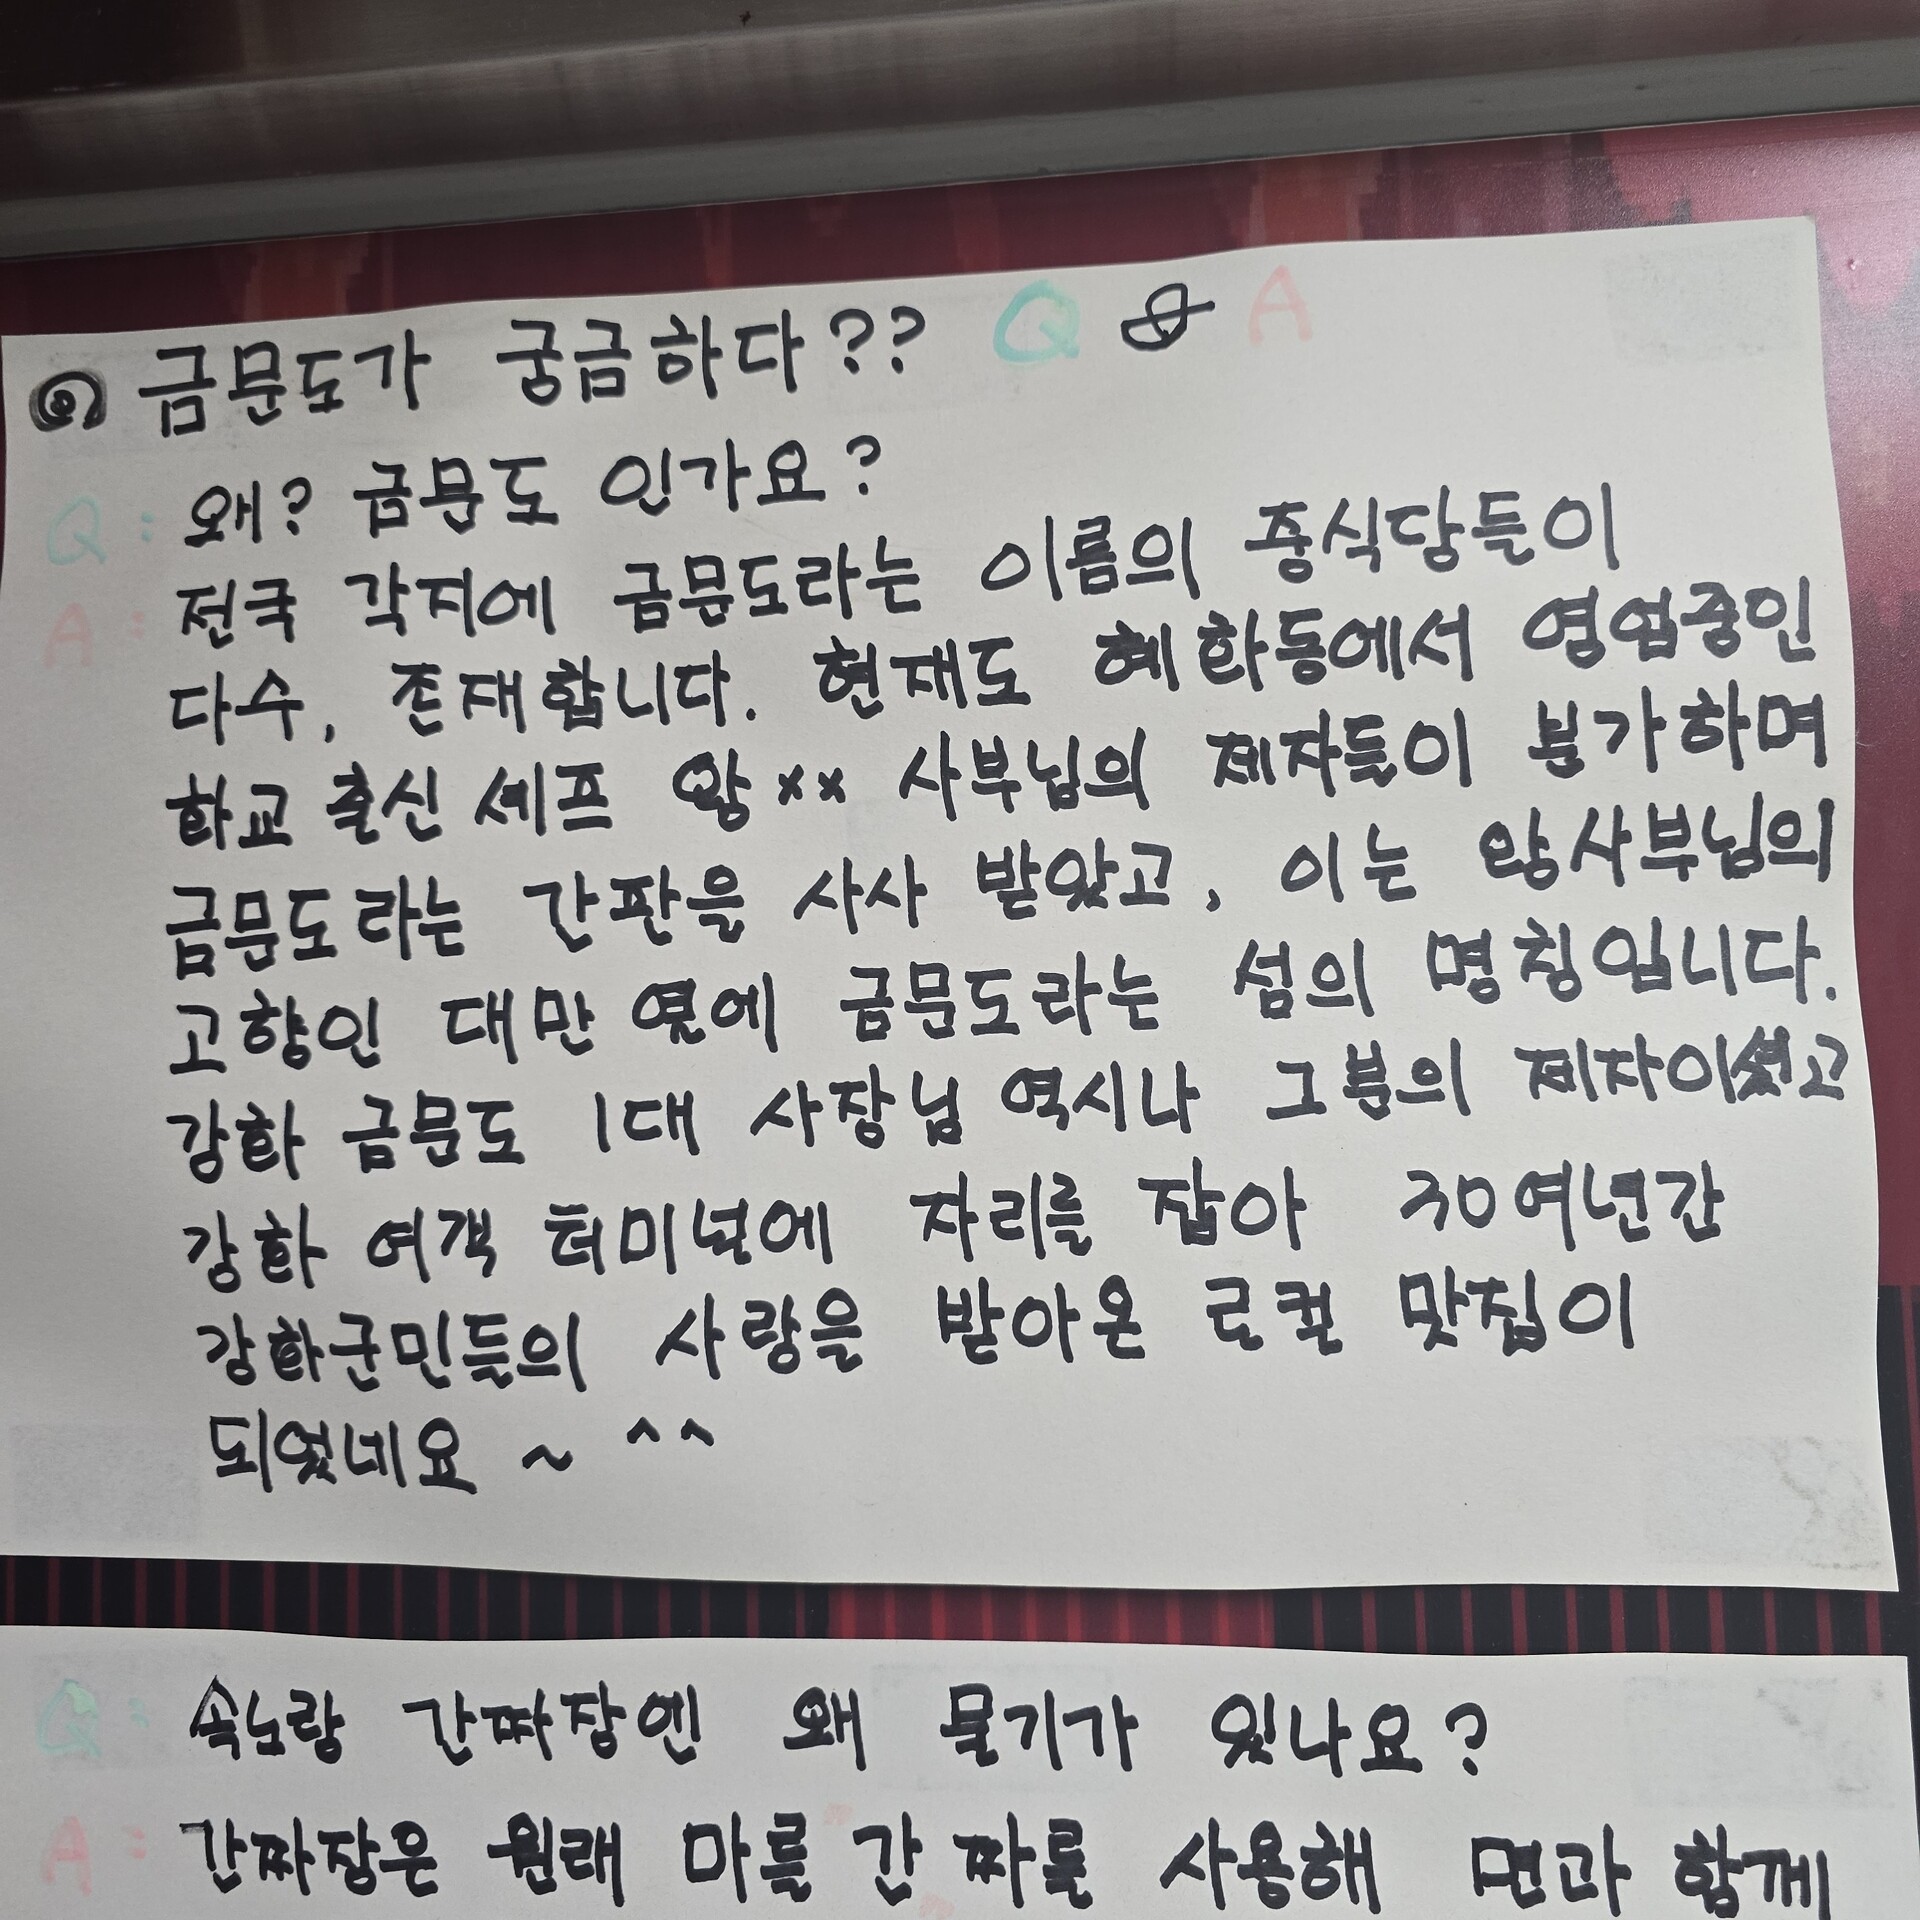 금문도가 궁금하다?? Q & A
Q: 왜? 금문도 인가요?
A: 전국 각지에 금문도라는 이름의 중식당들이
다수, 존재합니다. 현재도 혜화동에서 영업중인
화교 출신 셰프 왕xx 사부님의 제자들이 분가하며
금문도라는 간판을 사사 받았고, 이는 왕사부님의
고향인 대만 옆에 금문도라는 섬의 명칭입니다.
강화 금문도 1대 사장님 역시나 그분의 제자이셨고
강화 여객 터미널에 자리를 잡아 30여년간
강화군민들의 사랑을 받아온 로컬 맛집이
되었네요 ~ ^^
Q: 속노랑 간짜장엔 왜 물기가 있나요?
A: 간짜장은 원래 마를 간 짜를 사용해 면과 함께